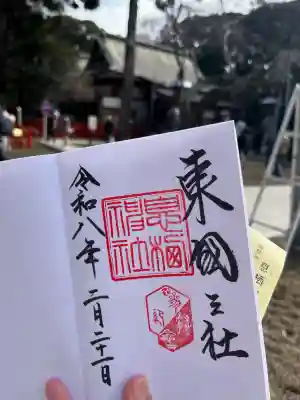 東國三社
息栖
神社
令和八年 二月二十一日
息栖